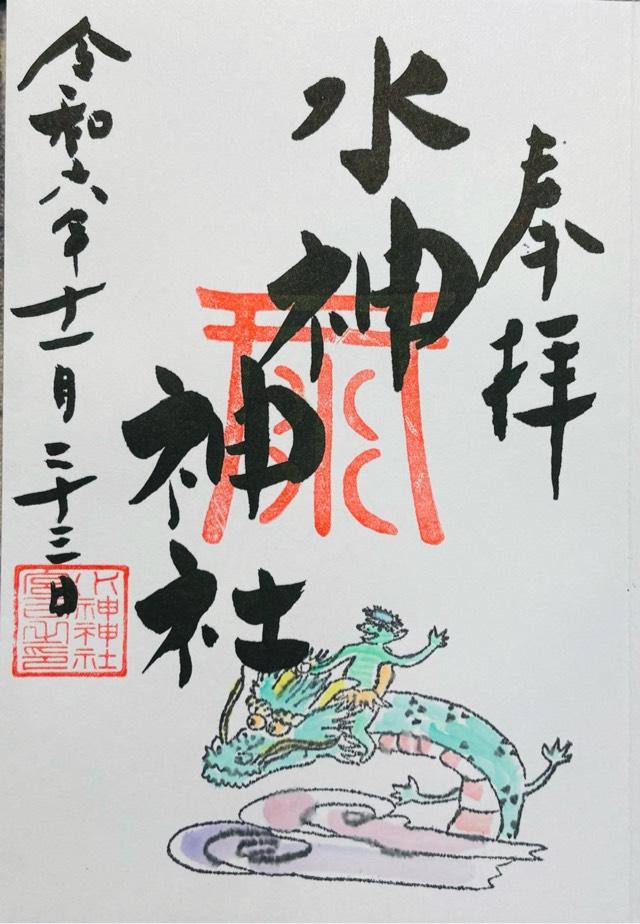 奉拝
水神
神社
令和六年十一月二十三日
水神神社
宮司之印